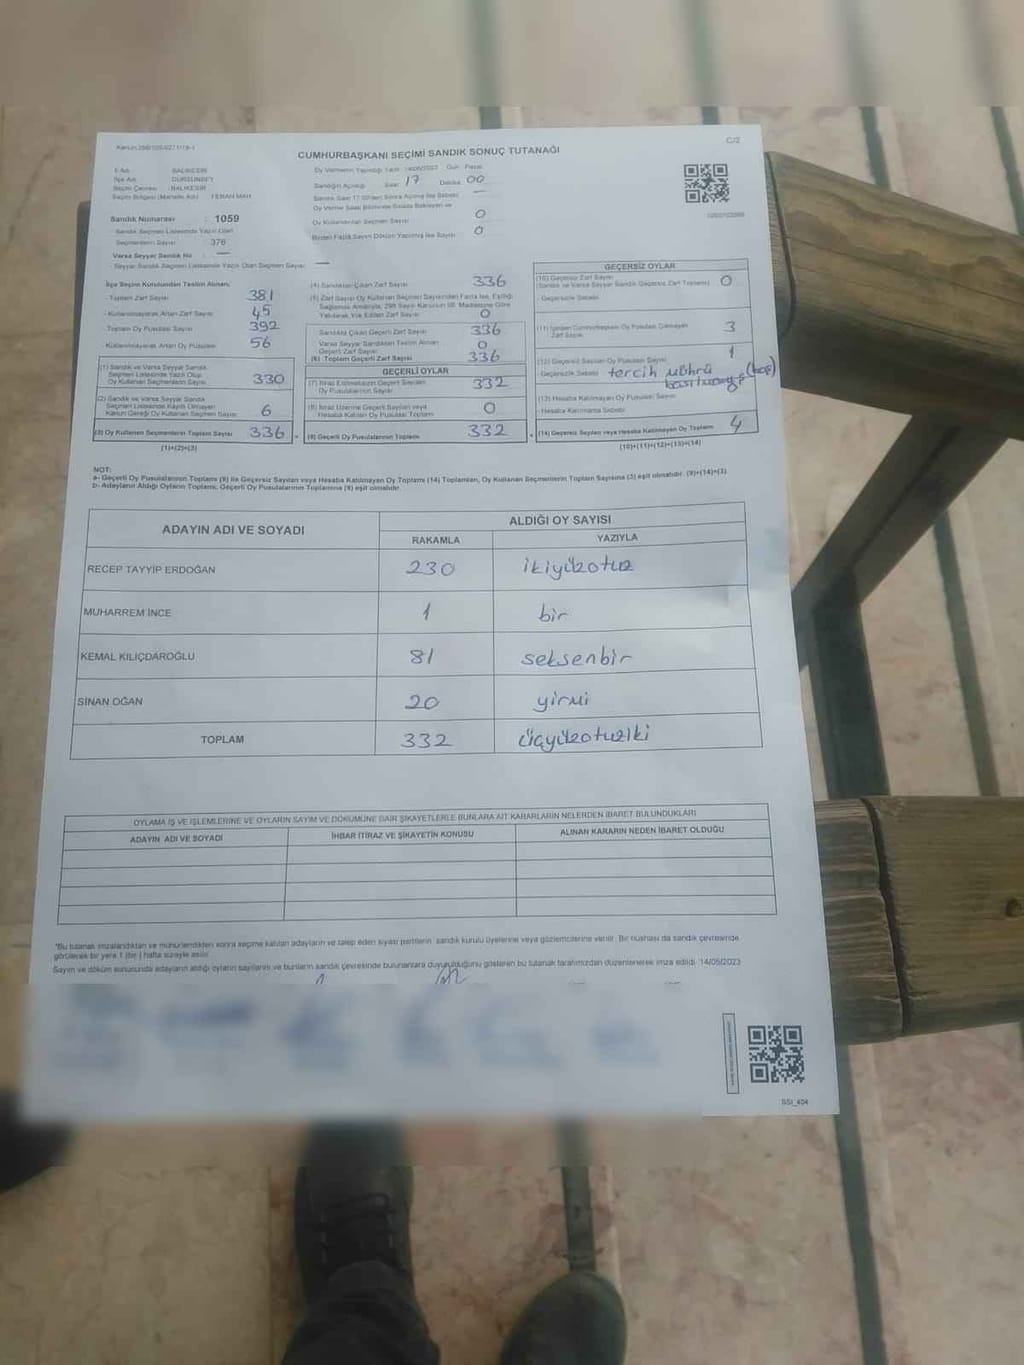 C/2
CUMHURBAŞKANI SEÇİMİ SANDIK SONUÇ TUTANAĞI
İl Adı : BALIKESİR
İlçe Adı : DURSUNBEY
Seçim Çevresi : BALIKESİR
Seçim Bölgesi (Mahalle Adı) : FERAH MAH.
Sandık Numarası : 1059
Sandık Seçmen Listesinde Yazılı Olan
Seçmenlerin Sayısı : 376
Varsa Seyyar Sandık No : —
Seyyar Sandık Seçmen Listesinde Yazılı Olan Seçmen Sayısı : —
Oy Vermenin Yapıldığı Tarih 14/05/2023 Gün Pazar
Sandığın Açılışı Saat 17 Dakika 00
Oy Kullandırılan Seçmen Sayısı 0
Birden Fazla Sayım Döküm Yapılmış İse Sayısı 0
İlçe Seçim Kurulundan Teslim Alınan:
- Toplam Zarf Sayısı 381
- Kullanılmayarak Artan Zarf Sayısı 45
- Toplam Oy Pusulası Sayısı 392
- Kullanılmayarak Artan Oy Pusulası 56
(1) Sandık ve Varsa Seyyar Sandık
Seçmen Listesinde Yazılı Olup,
Oy Kullanan Seçmenlerin Sayısı 330
(2) Sandık ve Varsa Seyyar Sandık
Seçmen Listesinde Kayıtlı Olmayan
Kanun Gereği Oy Kullanan Seçmen Sayısı 6
(3) Oy Kullanan Seçmenlerin Toplam Sayısı 336
(1)+(2)=(3)
(4) Sandıktan Çıkan Zarf Sayısı 336
(5) Zarf Sayısı Oy Kullanan Seçmen Sayısından Fazla İse, Eşitliği
Sağlamak Amacıyla, 298 Sayılı Kanunun 98. Maddesine Göre
Yakılarak Yok Edilen Zarf Sayısı 0
Sandıkta Çıkan Geçerli Zarf Sayısı 336
Varsa Seyyar Sandıktan Teslim Alınan
Geçerli Zarf Sayısı 0
(6) Toplam Geçerli Zarf Sayısı 336
GEÇERLİ OYLAR
(7) İtiraz Edilmeksizin Geçerli Sayılan
Oy Pusulalarının Sayısı 332
(8) İtiraz Üzerine Geçerli Sayılan veya
Hesaba Katılan Oy Pusulası Toplamı 0
(9) Geçerli Oy Pusulalarının Toplamı 332
GEÇERSİZ OYLAR
(10) Geçersiz Zarf Sayısı
(Sandık ve Varsa Seyyar Sandık Geçersiz Zarf Toplamı) 0
Geçersizlik Sebebi
(11) İçinden Cumhurbaşkanı Oy Pusulası Çıkmayan
Zarf Sayısı 3
(12) Geçersiz Sayılan Oy Pusulası Sayısı 1
Geçersizlik Sebebi tercih mührü (boş)
(13) Hesaba Katılmayan Oy Pusulası Sayısı
Hesaba Katılmama Sebebi
(14) Geçersiz Sayılan veya Hesaba Katılmayan Oy Toplamı 4
(10)+(11)+(12)+(13)=(14)
NOT:
a- Geçerli Oy Pusulalarının Toplamı (9) ile Geçersiz Sayılan veya Hesaba Katılmayan Oy Toplamı (14) Toplamları, Oy Kullanan Seçmenlerin Toplam Sayısına (3) eşit olmalıdır. (9)+(14)=(3)
b- Adayların Aldığı Oyların Toplamı, Geçerli Oy Pusulalarının Toplamına (9) eşit olmalıdır.
ADAYIN ADI VE SOYADI
ALDIĞI OY SAYISI
RAKAMLA YAZIYLA
RECEP TAYYİP ERDOĞAN 230 ikiyüzotuz
MUHARREM İNCE 1 bir
KEMAL KILIÇDAROĞLU 81 seksenbir
SİNAN OĞAN 20 yirmi
TOPLAM 332 üçyüzotuziki
OYLAMA İŞ VE İŞLEMLERİNE VE OYLARIN SAYIM VE DÖKÜMÜNE DAİR ŞİKAYETLERLE BUNLARA AİT KARARLARIN NELERDEN İBARET BULUNDUKLARI
ADAYIN ADI VE SOYADI
İHBAR İTİRAZ VE ŞİKAYETİN KONUSU
ALINAN KARARIN NEDEN İBARET OLDUĞU
*Bu tutanak imzalandıktan ve mühürlendikten sonra seçime katılan adayların ve talep eden siyasi partilerin sandık kurulu üyelerine veya gözlemcilerine verilir. Bir nüshası da sandık çevresinde
görülecek bir yere 1 (bir) hafta süreyle asılır.
Sayım ve döküm sonucunda adayların aldığı oyların sayılarını ve bunların sandık çevresinde bulunanlara duyurulduğunu gösteren bu tutanak tarafımızdan düzenlenerek imza edildi. 14/05/2023
SSI_404